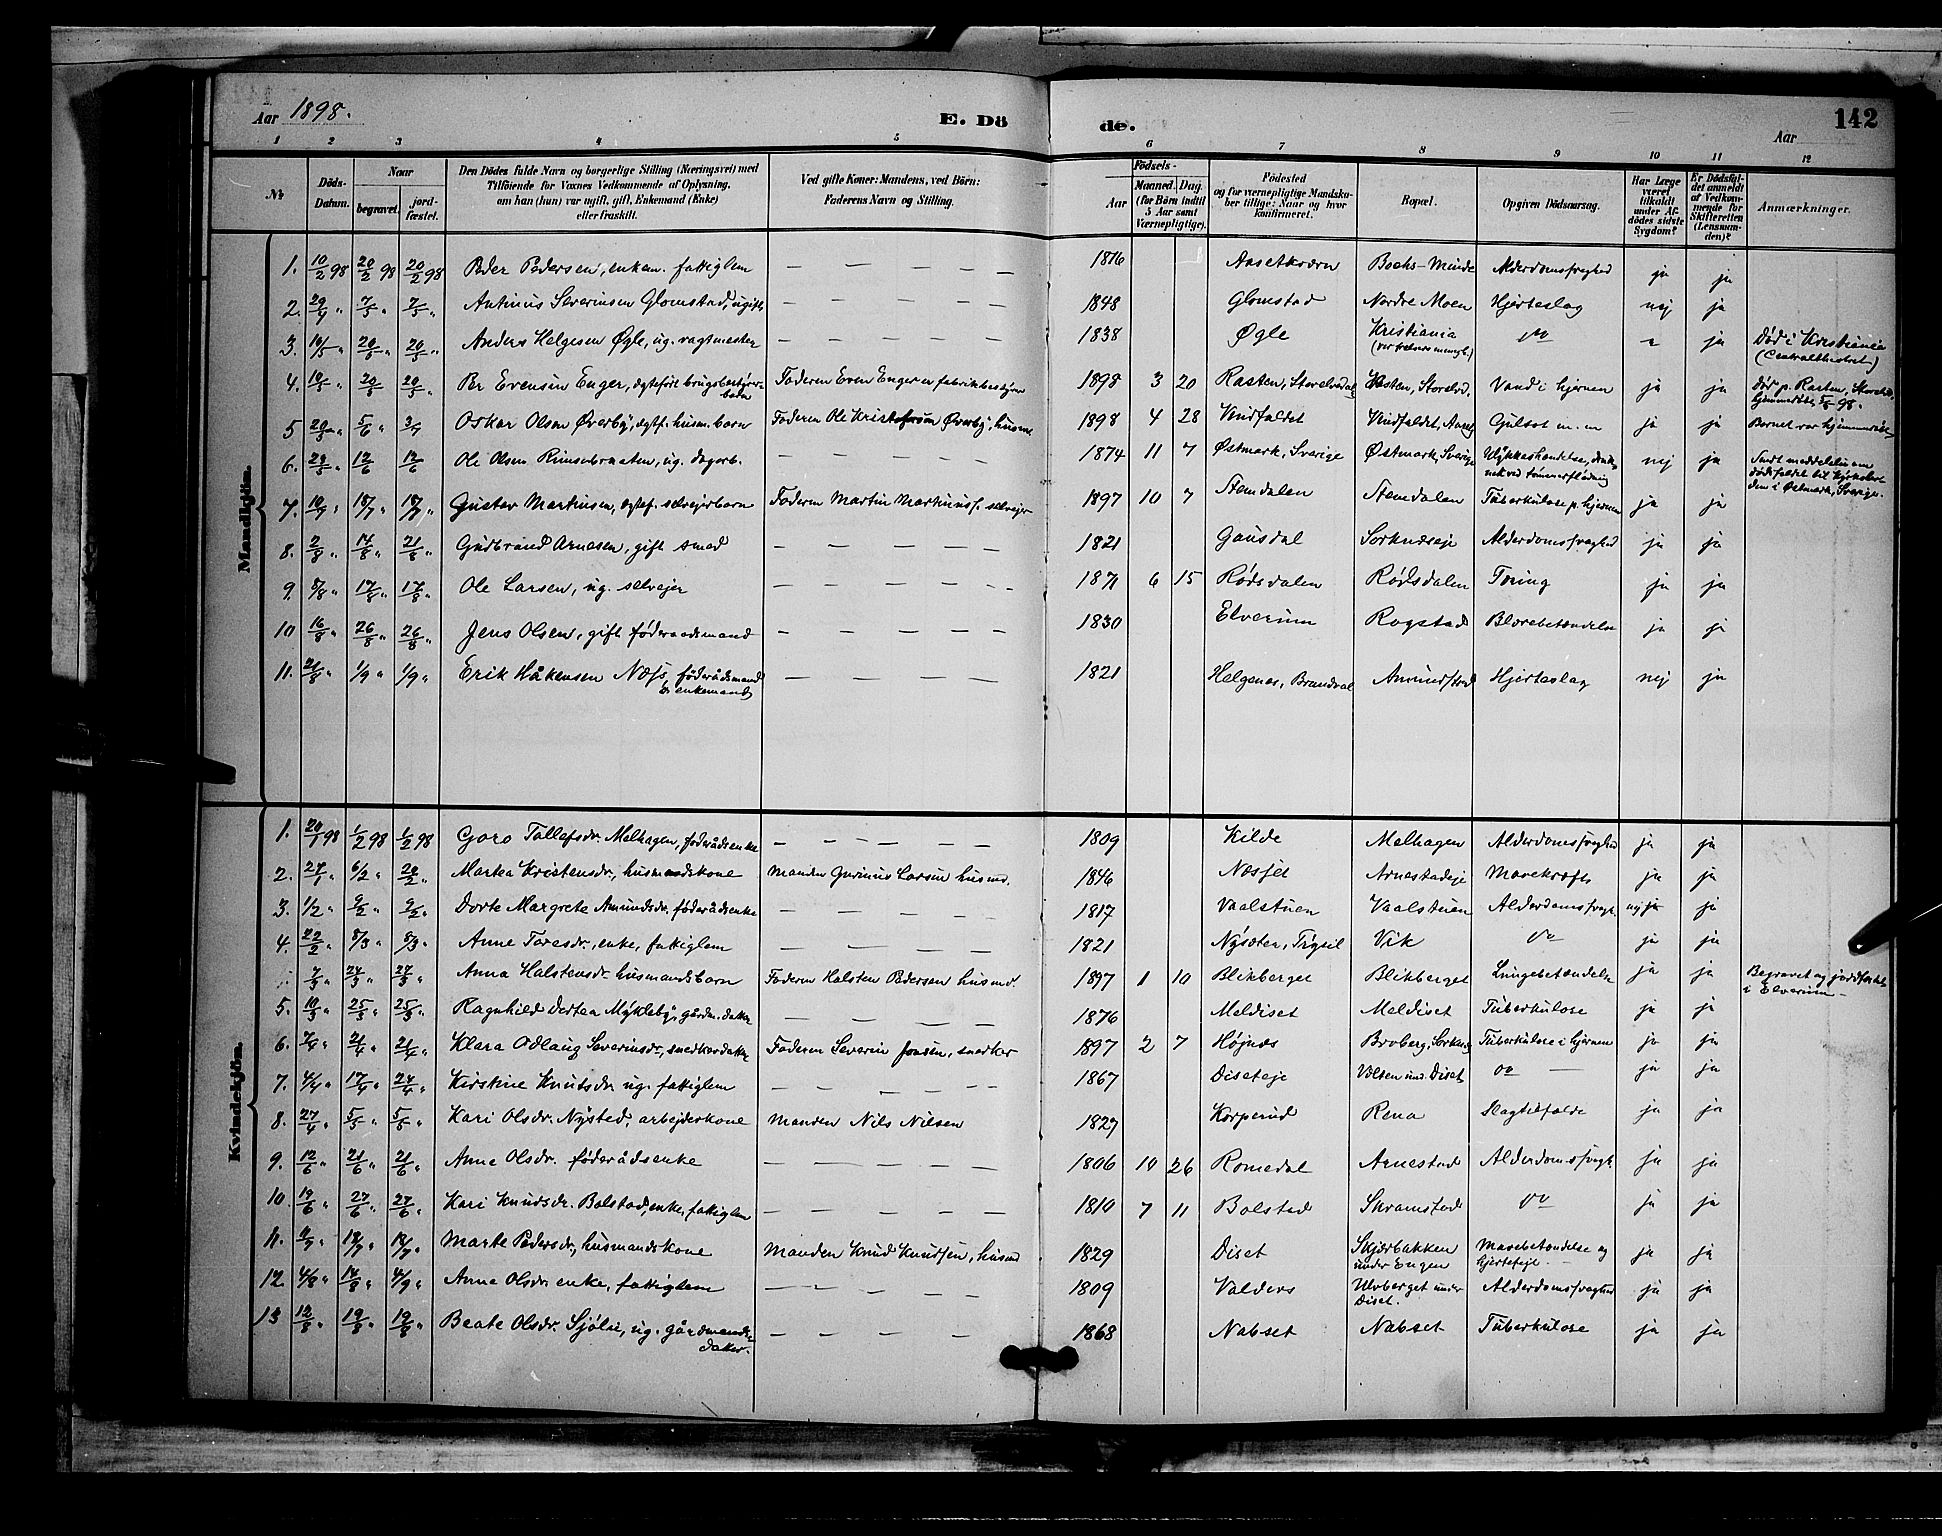 Aar 1898.
E. Dö
de.
Aar
142
1 2 3 4 5 6 7 8 9 10 11 12
No
Döds-Datum.
Naar
begravet.
jord-fæstet.
Den Dödes fulde Navn og borgerlige Stilling (Næringsvei) med
Tilföiende for Voxnes Vedkommende af Oplysning,
om han (hun) var ugift, gift, Enkemand (Enke)
eller fraskilt.
Ved gifte Koner: Mandens, ved Börn:
Faderens Navn og Stilling.
Födsels-
Aar
Maaned. Dag.
(for Börn indtil
5 Aar samt
Værnepligtige).
Födested
og for værnepligtige Mandska-
ber tillige: Naar og hvor
konfirmeret.
Bopæl.
Opgiven Dödsaarsag.
Har Læge
været
tilkaldt
under Af-
dödes sidste
Sygdom?
Er Dödsfal-
det anmeldt
af Vedkom-
mende for
Skifteretten
(Lensman-
den)?
Anmærkninger.
Mandkjön.
1. 10/2 98 20/2 98 20/2 98 Peder Pedersen, enkem. fattiglem — — — — — 1816 Aasetkværn Bochs-Minde Alderdomssvaghed ja ja
2. 29/4 " 7/5 " 7/5 " Antinius Severinsen Glomstad, ugift — — — — — 1848 Glomstad Nordre Moen Hjerteslag nej ja
3. 10/5 " 20/5 " 20/5 " Anders Helgesen Øgle, ug. vagtmester — — — — — 1838 Øgle Kristiania ja Död i Kristiania
4. 10/5 " 20/5 " 20/5 " Per Evensen Enger, ægteföft brugsbestyrer- Faderen Even Enger er fabrikbestyrer 1898 3 20 Rasten, Storelvedal Rasten, Storelvd. Vand i hjernen ja ja
barn
5 20/5 " 5/6 " Oskar Olsen Øverby, ægtf. husm. barn Faderen Ole Kristofersøn Øverby, husmd. 1898 4 28 Vindfaldet Vindfaldet, Gulsot m. m ja ja Barnet var hjemmedöbt
6. 29/5 " 12/6 12/6 Ole Olsen ug. dagarb. 1874 11 7 Østmark, Sverige Østmark, Sverige Ulykkeshændelse, nej ja Sendt meddelelse om
ved tømmerflødning dödsfaldet til
i Østmark, Sverige.
7. 10/7 " 18/7 " 18/7 " Gustav Markusen, ægtef. selvejerbarn Faderen Martin Markuss. selvejer 1897 10 7 Stemdalen Stemdalen Tuberkulose p. hjernen ja ja
8. 2/8 " 14/8 " 21/8 " Gudbrand Arnesen, gift smed — — — — — 1821 Gausdal Sorknæseje Alderdomssvaghed ja ja
9. 8/8 " 17/8 " 17/8 " Ole Larsen, ug. selvejer — — — — — 1871 6 15 Rødsdalen Rødsdalen Tæring ja ja
10 16/8 " 26/8 " 26/8 " Jens Olsen, gift føderaadsmand — — — — — 1830 Elverum Rogstad Blærebetændelse ja ja
11. 21/8 " 1/9 " 1/9 " Erik Håkensen Næss, föderådsmand — — — — — 1821 Helgenes, Brandval Amundstad Hjerteslag nej ja
& enkemand
Kvindekjön.
1. 20/1 98 1/2 98 1/2 98 Goro Tollefsdr. Melhagen, föderådsenke — — — — — 1809 Kilde Melhagen Alderdomssvaghed ja ja
2. 27/1 " 6/2 " 20/2 " Martea Kristensdr., husmandskone Manden Gurinius Larsen husmd. 1846 Næsset Arnestadeje Mavekræft ja ja
3. 1/2 " 9/2 " 9/2 " Dorte Margrete Amundsdr. föderådsenke — — — — — 1817 Vaalstuen Vaalstuen Alderdomssvagh. nej ja
4. 22/2 " 8/3 " 8/3 " Anne Toresdr., enke, fattiglem — — — — — 1821 Nysæter, Trysil Vik do ja ja
7/3 " 24/3 " 27/3 " Anna Halstensdr. husmandsbarn Faderen Halsten Pedersen husmd. 1897 1 10 Blikberget Blikberget Lungebetændelse ja ja Begravet og jordfæstet
i Elverum —
5. 10/3 " 25/3 " 25/3 " Ragnhild Dortea Mykleby, gårdm. datter — — — — 1876 Meldiset Meldiset Tuberkulose ja ja
6. 7/4 " 21/4 " 21/4 " Klara Odlaug Severinsdr., snedkerdatter Faderen Severin Jonsen, snedker 1897 2 7 Højnæs Broberg, Sorknes Tuberkulose i hjernen ja ja
7. 4/4 " 17/4 " 24/4 " Kirstine Knutsdr. ug. fattiglem — — — — 1867 Diseteje Volten und. Diset do — ja ja
8. 27/4 " 5/5 " 5/5 " Kari Olsdr. Nysted, arbejderkone Manden Nils Nilsen 1829 Korperud Rena Slagtilfælde ja ja
9. 12/6 " 21/6 " 21/6 " Anne Olsdr. föderådsenke — — — — — 1806 10 26 Romedal Arnestad Alderdomssvagh. ja ja
10. 19/6 " 27/6 " 27/6 " Kari Knudsdr. Bolstad, enke, fattiglem — — — — — 1810 7 11 Bolstad Skramstad do ja ja
11. 9/7 " 18/7 " 18/7 " Marte Pedersdr., husmandskone Manden Knud Knudsen, husmd 1829 Diset Skjærbakken Mavebetændelse og ja ja
under Engen hjertefejl. —
12. 4/8 " 14/8 " 4/9 " Anne Olsdr. enke, fattiglem — — — — — 1809 Valders Ulvberget under Alderdomssvaghed ja ja
Diset.
13 12/8 " 19/8 " 19/8 " Beate Olsdr. Sjölie, ug. gårdmands- — — — — — 1868 Nabset Nabset Tuberkulose ja ja
datter.